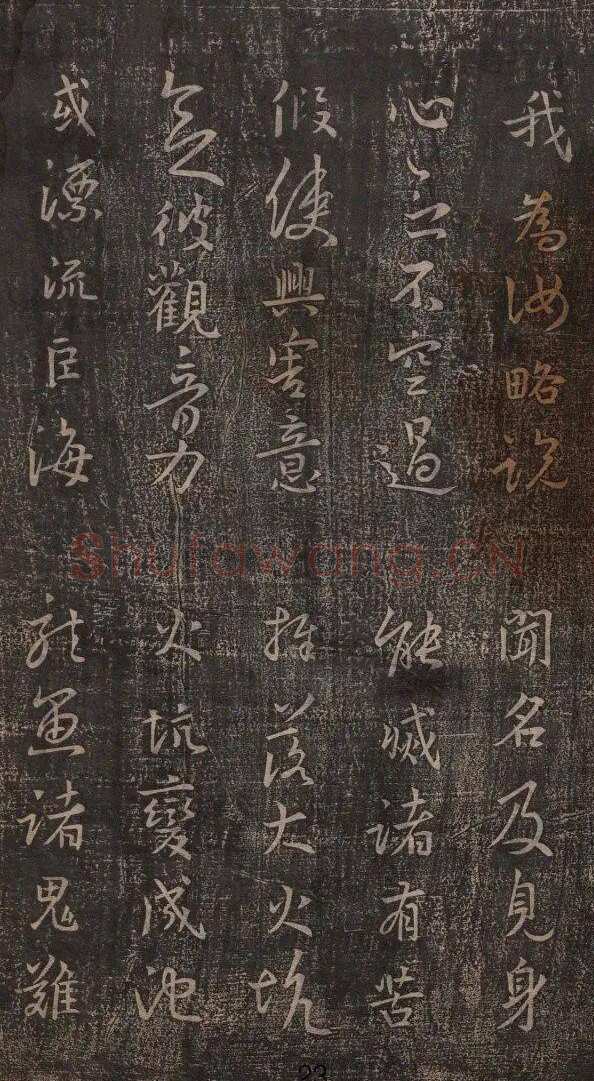 我為汝略說 聞名及見身
心念不空過 能滅諸有苦
假使興害意 推落大火坑
念彼觀音力 火坑變成池
或漂流巨海 龍魚諸鬼難
Shufawang.CN
23